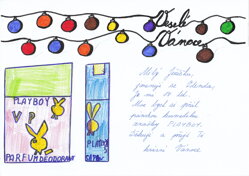 Veselé
Vánoce
PLAYBOY
V P
PARFUM DEODORANT
PLAYBOY
Milý Ježíšku,
jmenuji se Zdenda,
je mi
Moc bych si přál
pánskou kosmetiku
značky PLAYBOY.
Děkuji a přeji Ti
krásné Vánoce